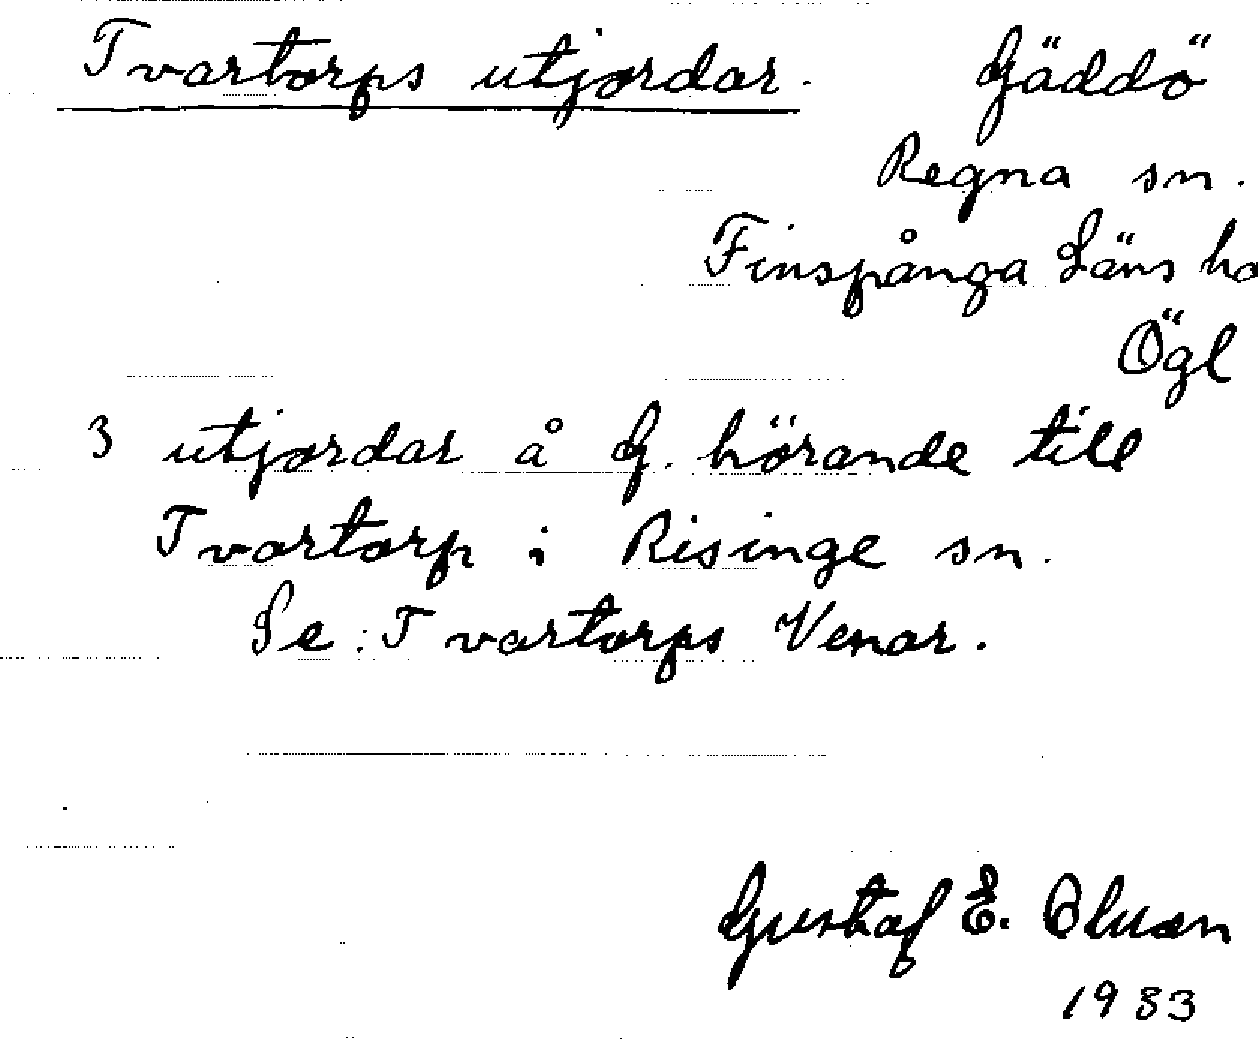 Tvartorps utjordar. Gäddö
Regna sn.
Finspånga Läns ha
Ögl
3 utjordar å G. hörande till
Tvartorp i Risinge sn.
Se: Tvartorps Venar.
Gustaf E.
1983